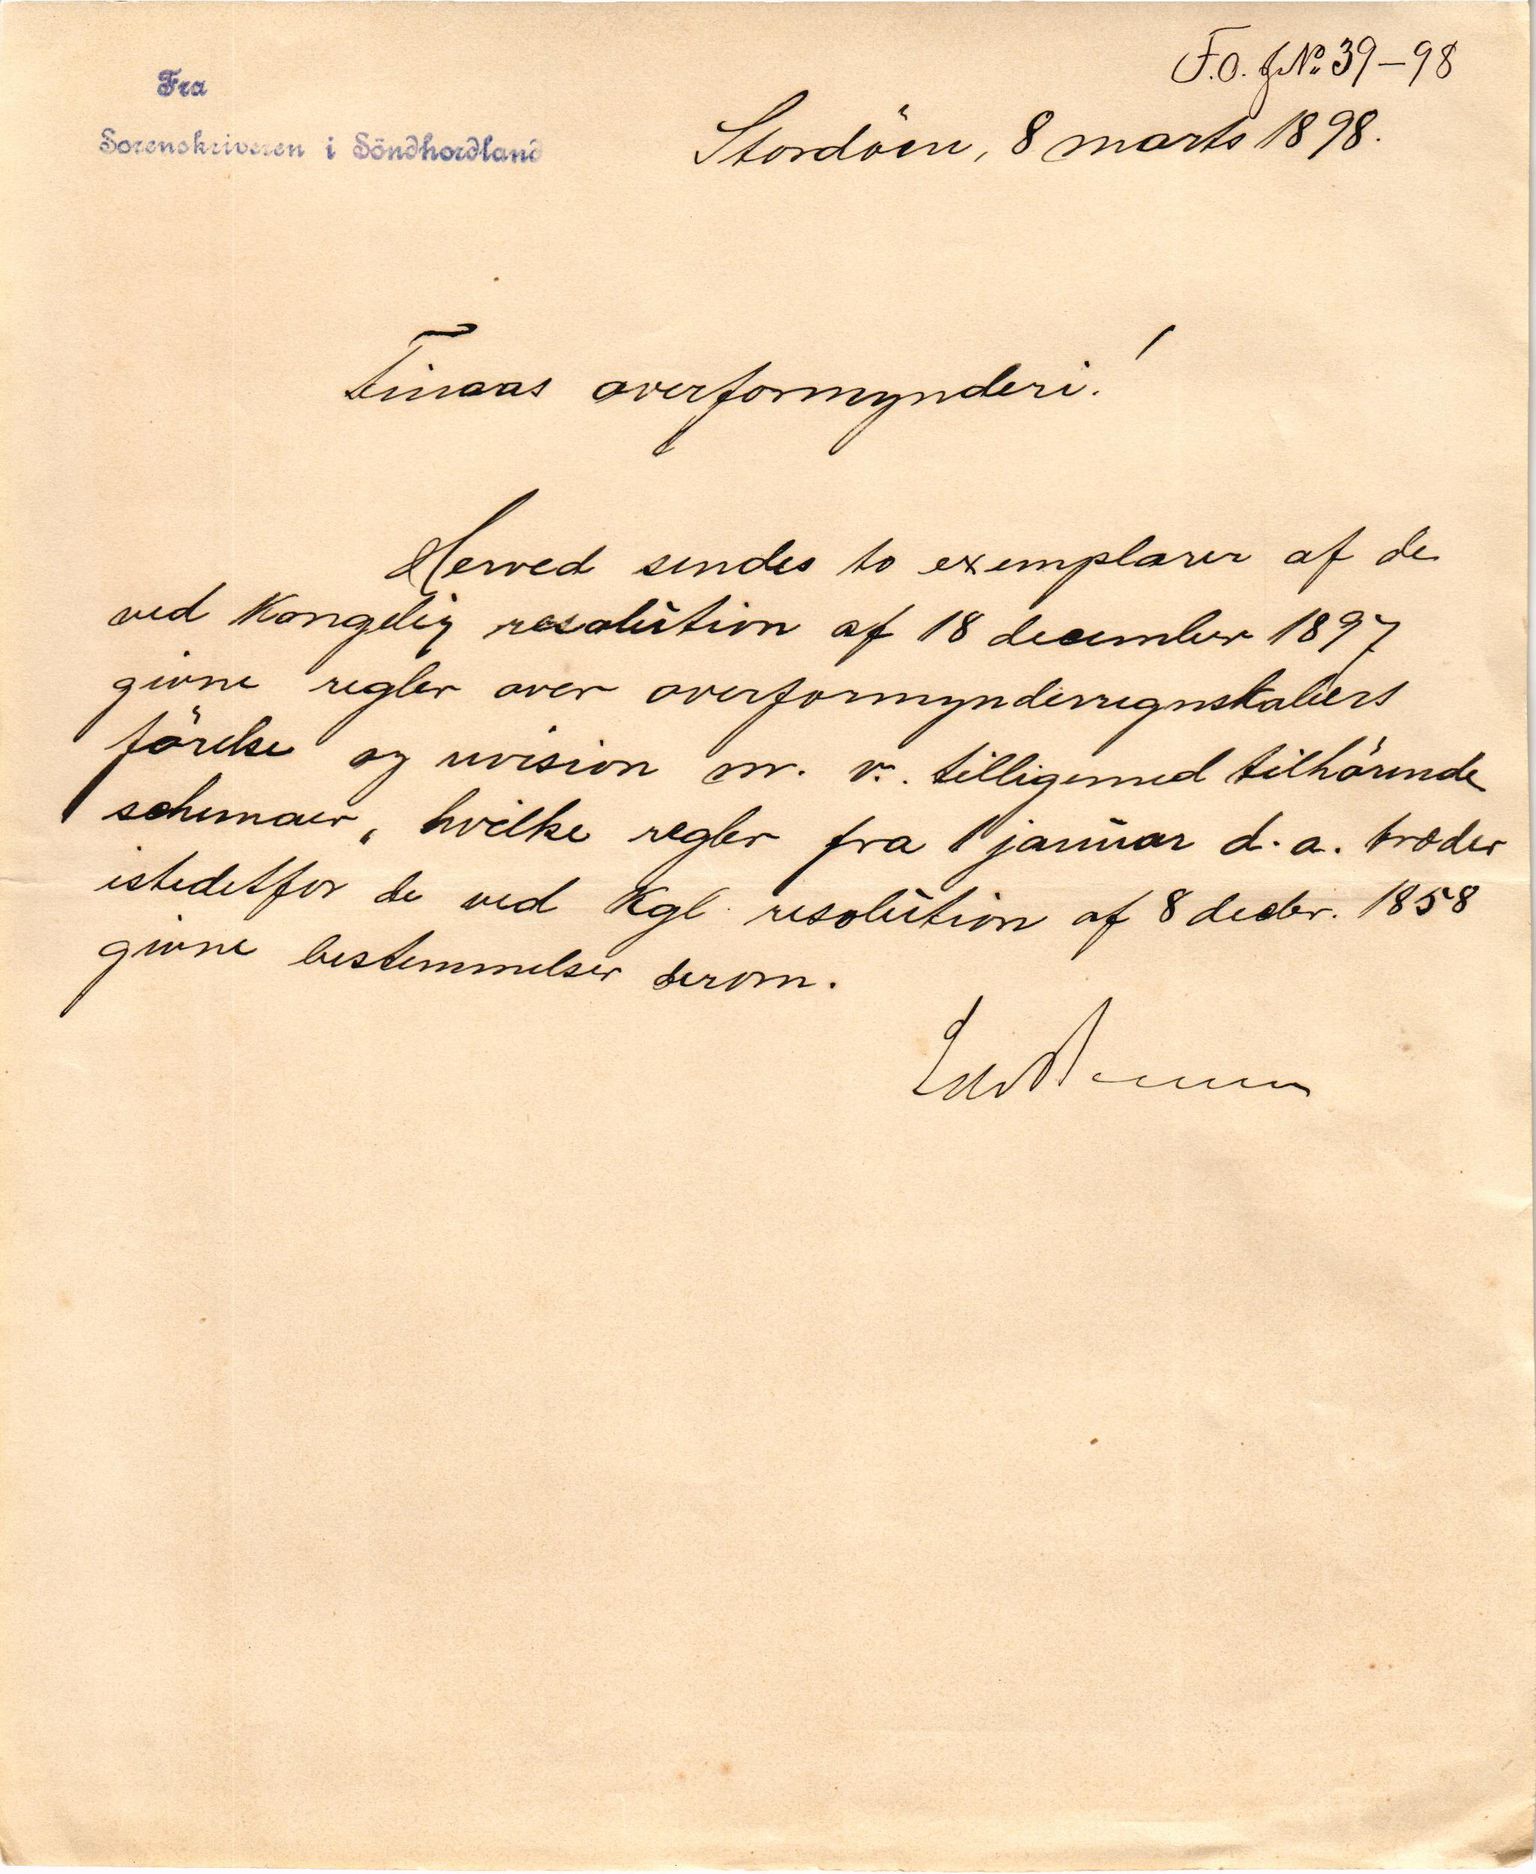 F.O. J.No. 39-98
Fra
Sorenskriveren i Söndhordland
Stordöen, 8 marts 1898.
Finaas overformynderi!
Herved sendes to exemplarer af de
ved Kongelig resolution af 18 december 1897
givne regler over overformynderregnskabers
förelse og revision m. v. tilligemed tilhörende
schemaer, hvilke regler fra 1 januar d. a. træder
istedetfor de ved Kgl. resolution af 8 decbr. 1858
givne bestemmelser derom.